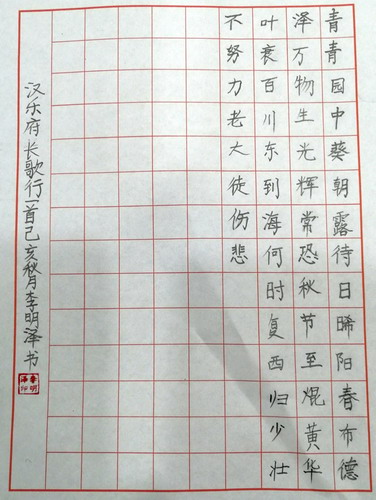 青青园中葵朝露待日晞阳春布德
泽万物生光辉常恐秋节至焜黄华
叶衰百川东到海何时复西归少壮
不努力老大徒伤悲
汉乐府长歌行一首己亥秋月李明泽书